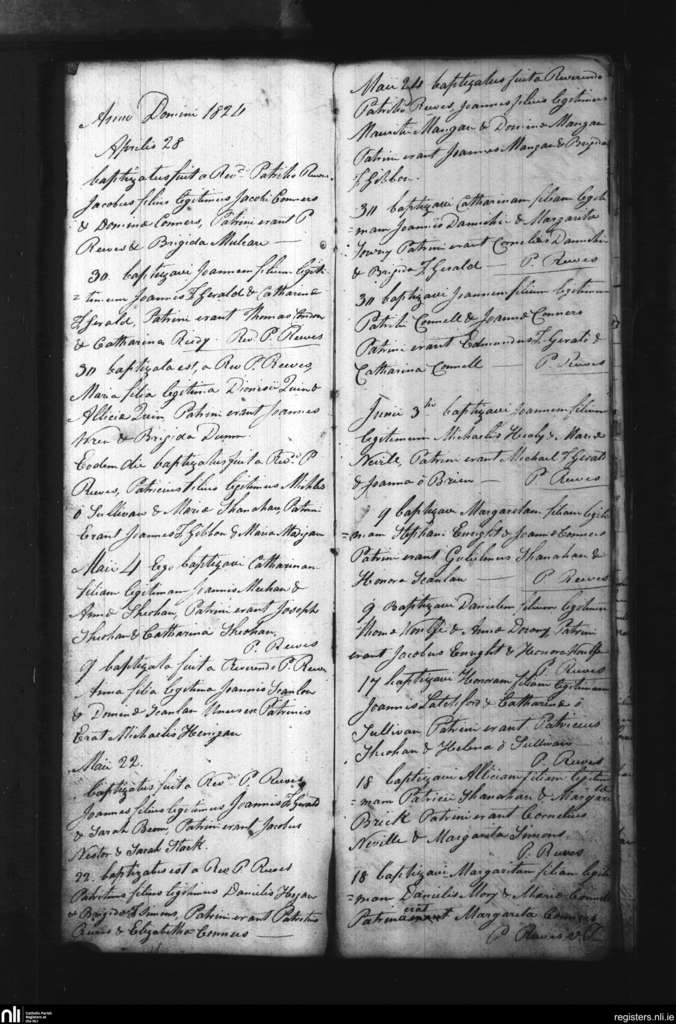 Anno Domini 1824
Aprilis 28
baptizatus fuit a Revd. Patritio Reeves
Jacobus filius legitimus Jacobi Conners
& Domina Conners, Patrini erant P
Reeves & Brigida Meehan
30. baptizavi Joannem filium legit
=timum Joannis F Gerald & Catharina
F Gerald, Patrini erant Thomas
& Catharina Reidy. Revd. P. Reeves
30 baptizata est, a Rev P. Reeves
Maria filia legitima Dionisii Quin &
Allicia Quin Patrini erant Joannes
Wren & Brigida Dunn.
Eodem die baptizatus fuit a Revd. P
Reeves, Patricius filius legitimus Michlis
ó Sullivan & Maria Shanahan, Patrini
Erant Joannes F Gibbon & Maria Madigan
Maii 4 Ego baptizavi Catharinam
filiam legitimam Joannis Meehan &
Anna Sheehan, Patrini erant Joseph
Sheehan & Catharina Sheehan,
P. Reeves
9 baptizata fuit a Reverendo P. Reeves
Anna filia legitima Joannis Scanlon
& Domina Scanlan Patrinis
Erat Michaelis Henigan
Maii 22.
baptizatus fuit a Revd. P. Reeves
Joannes filius legitimus Joannis F Gerald
& Sarah Beem, Patrini erant Jacobus
Nestor & Sarah Hack
22. baptizatus est a Rev P Reeves
Patritius filius legitimus Danielis Hogan
& Brigida F Simons, Patrini erant Patritius
Reeves & Elizabetha Conners
Maii 24 baptizatus fuit a Reverendo
Patritio Reeves Joannes filius legitimus
Mauritii Mangan & Domina Mangan
Patrini erant Joannes Mangan & Brigida
F Gibbon.
30 baptizavi Catharinam filiam legiti
=mam Joannis Danihi & Margarita
Lowry Patrini erant Cornelius Danihi
& Brigida F Gerald P. Reeves
30 baptizavi Joannem filium legitimum
Patritii Connell & Joanna Conners
Patrini erant Edmundus F Gerald &
Catharina Connell P Reeves
Junii 3th baptizavi Joannem filium
legitimum Michaelis Healy & Maria
Nevile, Patrini erant Michael F Gerald
& Joanna ó Brien P Reeves
9 baptizavi Margaritam filiam legiti
=mam Stephani Enright & Joanna Conners
Patrini erant Gulielmus Shanahan &
Honora Scanlan P Reeves
9 Baptizavi Danielem filium legitimum
Thoma Woulfe & Anna Patrini
erant Jacobus Enright & Honora Woulfe
P. Reeves
17 baptizavi Honoram filiam legitimam
Joannis Latchford & Catharina ó
Sullivan Patrini erant Patricius
Sheehan & Helena ó Sullivan
P. Reeves
18 baptizavi Alliciam filiam legiti
=mam Patricii Shanahan & Margarita
Brick Patrini erant Cornelius
Neville & Margarita Simons.
P. Reeves
18 baptizavi Margaritam filiam legiti
=mam Danielis Mory & Maria Connell
Patrini erat Margarita Conners
P Reeves
nli
Catholic Parish
Registers at
the NLI
registers.nli.ie